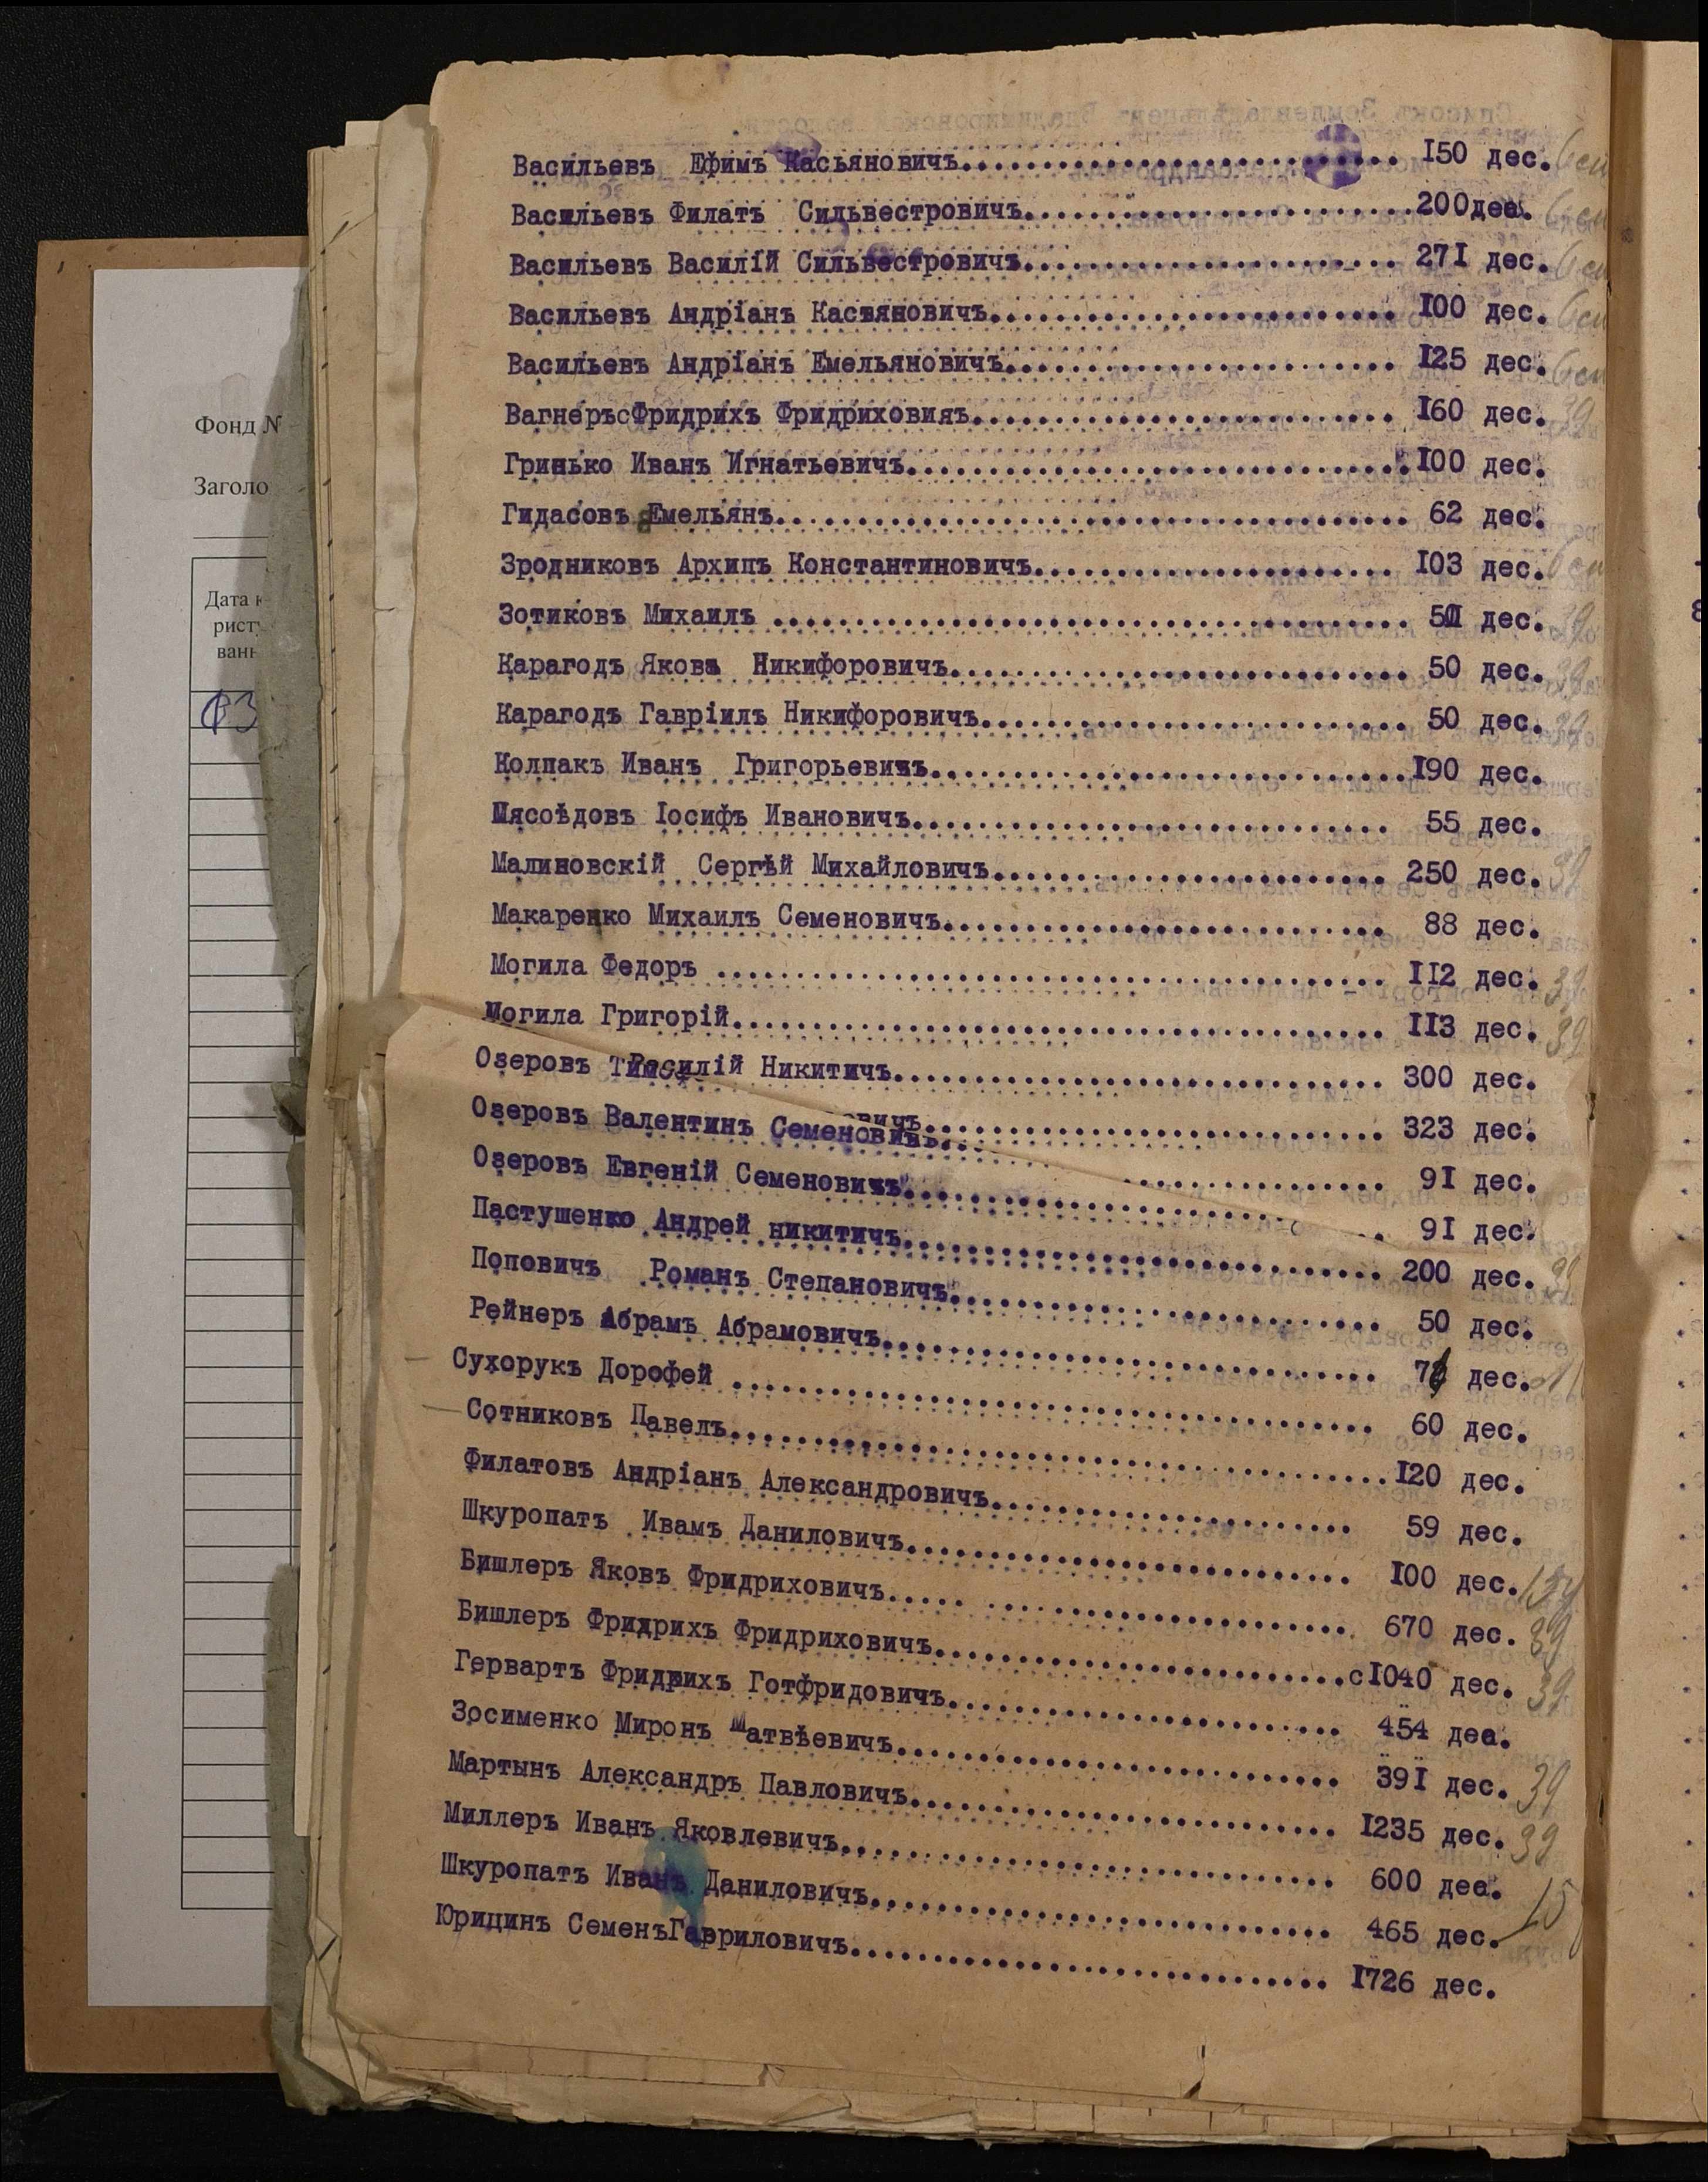 Васильевъ Ефимъ Касьяновичъ........................... 150 дес.
Васильевъ Филатъ Сильвестровичъ........................200деа.
Васильевъ Василій Сильвестровичъ....................... 271 дес.
Васильевъ Андріанъ Касьяновичъ......................... 100 дес.
Васильевъ Андріанъ Емельяновичъ........................ 125 дес.
ВагнеръсФридрихъ Фридриховияъ.......................... 160 дес.
Гринько Иванъ Игнатьевичъ...............................100 дес.
Гидасовъ Емельянъ....................................... 62 дес.
Зродниковъ Архипъ Константиновичъ...................... 103 дес.
Зотиковъ Михаилъ ....................................... дес.
Карагодъ Яковъ Никифоровичъ............................ 50 дес.
Карагодъ Гавріилъ Никифоровичъ.......................... 50 дес.
Колпакъ Иванъ Григорьевичъ..............................190 дес.
Мясоѣдовъ Іосифъ Ивановичъ.............................. 55 дес.
Малиновскій Сергѣй Михайловичъ......................... 250 дес.
Макаренко Михаилъ Семеновичъ............................ 88 дес.
Могила Федоръ .......................................... 112 дес.
Могила Григорій......................................... 113 дес.
Озеровъ Василій Никитичъ............................... 300 дес.
овичъ............................. 323 дес.
Озеровъ Валентинъ Семеновичъ................ 91 дес.
Озеровъ Евгеній Семеновичъ........................ 91 дес.
Пастушенко Андрей никитичъ.............................. 200 дес.
Поповичъ Романъ Степановичъ............................ 50 дес.
Рейнеръ Абрамъ Абрамовичъ............................... дес.
Сухорукъ Дорофей ....................................... 60 дес.
Сотниковъ Павелъ........................................120 дес.
Филатовъ Андріанъ Александровичъ....................... 59 дес.
Шкуропатъ Ивамъ Даниловичъ............................. 100 дес.
Бишлеръ Яковъ Фридриховичъ..... ....................... 670 дес. 39
Бишлеръ Фридрихъ Фридриховичъ..........................с1040 дес. 39
Гервартъ Фридрихъ Готфридовичъ......................... 454 деа.
Зосименко Миронъ Матвѣевичъ............................ 391 дес. 39
Мартынъ Александръ Павловичъ........................... 1235 дес. 39
Миллеръ Иванъ Яковлевичъ............................... 600 деа.
Шкуропатъ Иванъ Даниловичъ............................. 465 дес. 15
Юрицинъ СеменъГавриловичъ.............................. 1726 дес.
Фонд N
Заголо
Дата к
рист
ванн